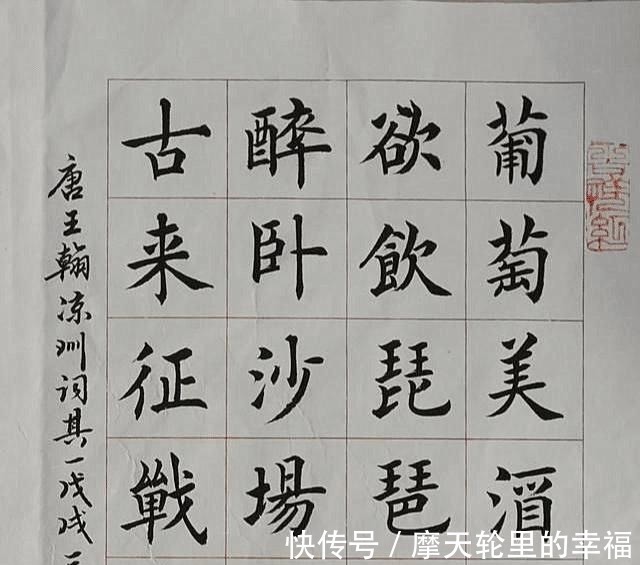 葡萄美酒
欲飲琵琶
醉卧沙場
古来征戰
唐王翰凉州词其一戊戌
快传号/摩天轮里的幸福